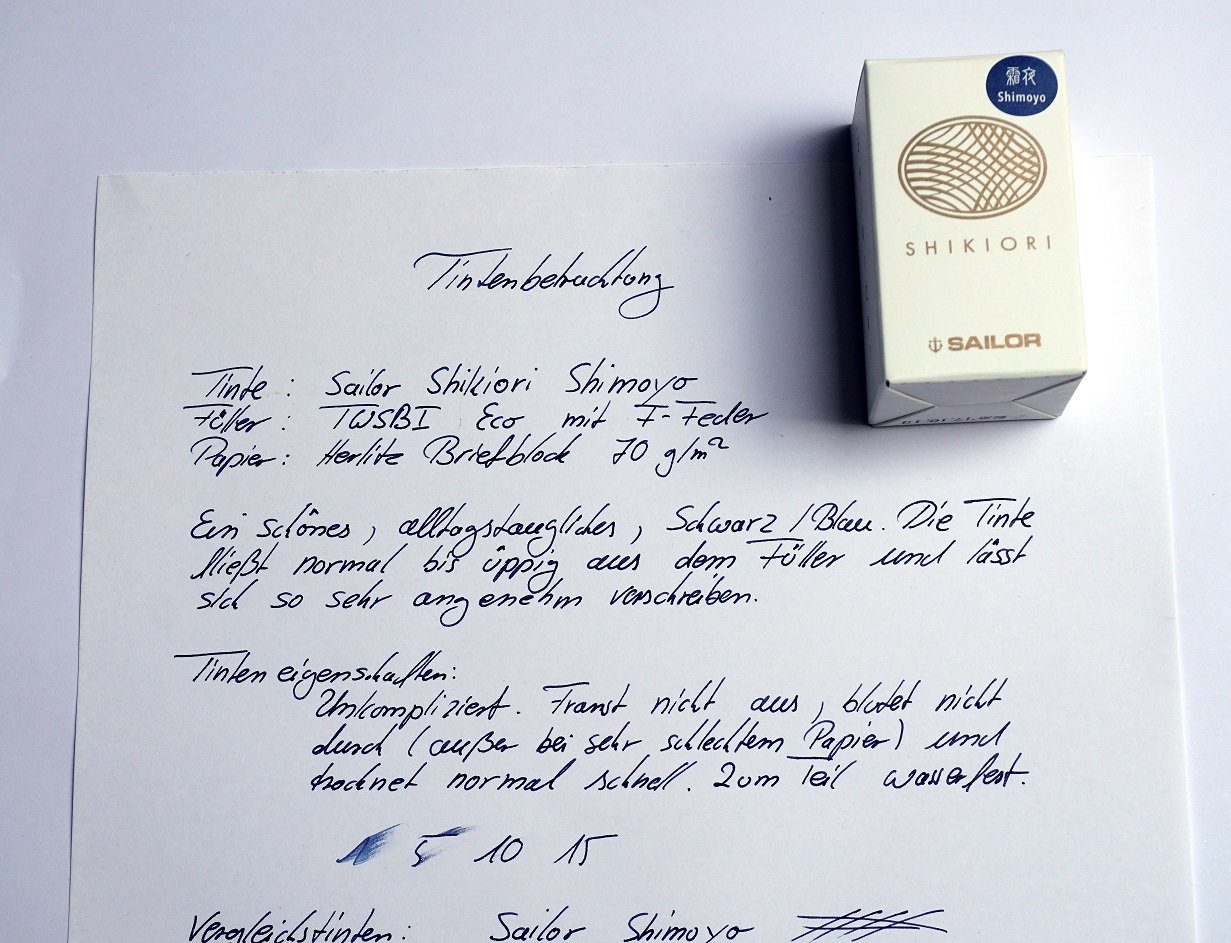 霜夜
Shimoyo
SHIKIORI
SAILOR
Tintenbetrachtung
Tinte : Sailor Shikiori Shimoyo
Füller : TWSBI Eco mit F-Feder
Papier : Herlitz Briefblock 70 g/m²
Ein schönes, alltagstaugliches, Schwarz/Blau. Die Tinte
fließt normal bis üppig aus dem Füller und lässt
sich so sehr angenehm verschreiben.
Tinteneigenschaften:
Unkompliziert. Franst nicht aus, blutet nicht
durch (außer bei sehr schlechtem Papier) und
trocknet normal schnell. Zum Teil wasserfest.
5 10 15
Vergleichstinten: Sailor Shimoyo